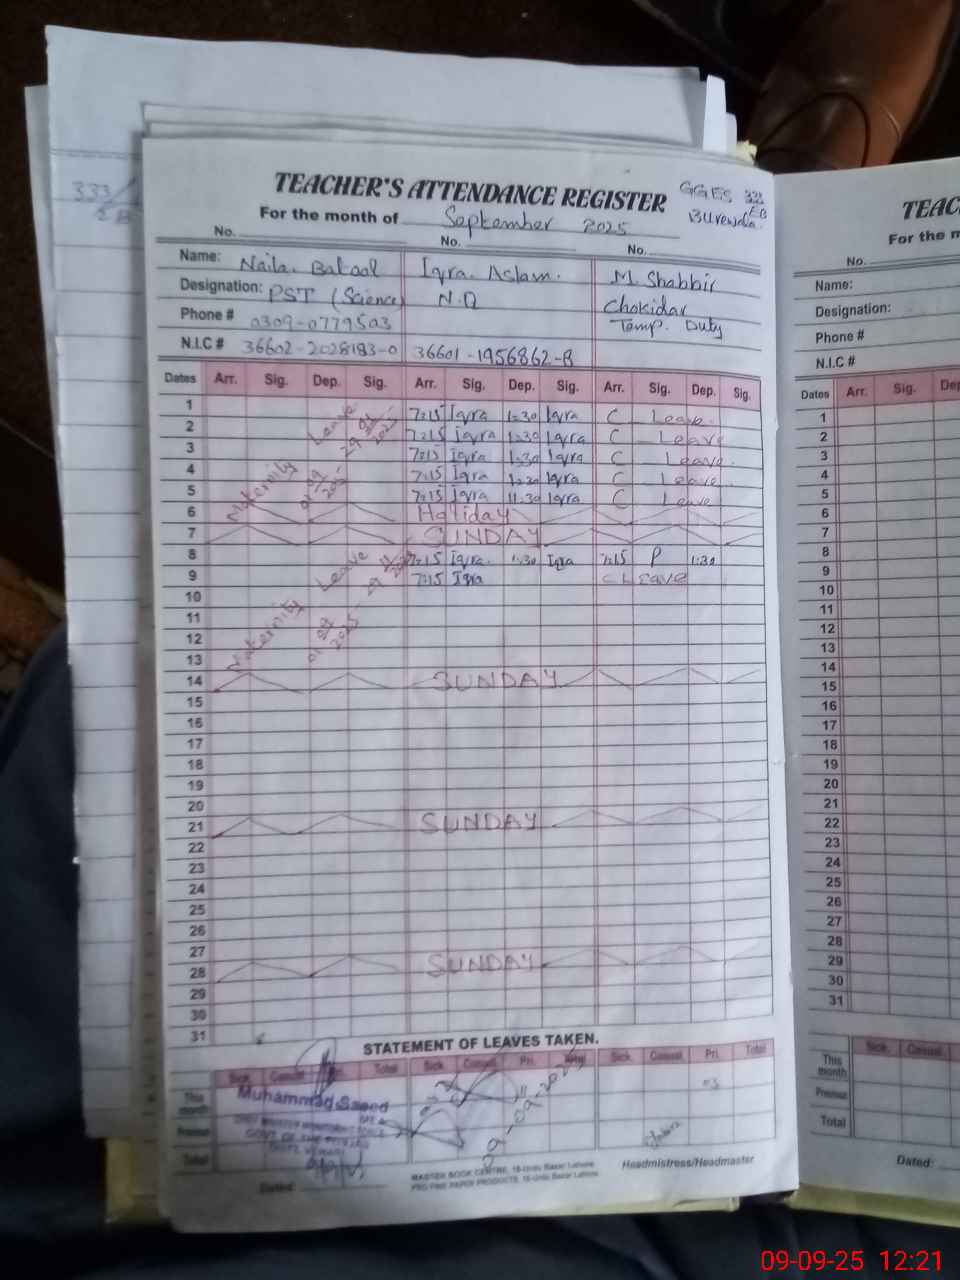 333/
EB
TEACHER'S ATTENDANCE REGISTER
GGES 331
EB
Burewala
For the month of September 2025
No. No. No.
Name: Naila Batool Iqra Aslam. M. Shabbir
Designation: PST (Science) N.Q Chokidar
Temp. Duty
Phone # 0309-0779503
N.I.C # 36602-2028183-0 36601-1956862-8
Dates Arr. Sig. Dep. Sig. Arr. Sig. Dep. Sig. Arr. Sig. Dep. Sig.
1 7:15 Iqra 1:30 Iqra C Leave
2 7:15 Iqra 1:30 Iqra C Leave
3 7:15 Iqra 1:30 Iqra C Leave
4 7:15 Iqra 1:30 Iqra C Leave
5 7:15 Iqra 11:30 Iqra C Leave
Maternity Leave
6 Holiday
7 SUNDAY
8 7:15 Iqra 1:30 Iqra 7:15 P 1:30
9 7:15 Iqra C Leave
Maternity Leave
10
11
12
13
14 SUNDAY
15
16
17
18
19
20
21 SUNDAY
22
23
24
25
26
27
28 SUNDAY
29
30
31
STATEMENT OF LEAVES TAKEN.
Sick. Casual Total Sick. Casual Pri. Total Sick. Casual Pri. Total
This month
Previous
Total
Muhammad Saeed
9-09-2025
Dated:
MASTER BOOK CENTRE, 16-Urdu Bazar Lahore
PRO FINE PAPER PRODUCTS, 16-Urdu Bazar Lahore
Headmistress/Headmaster
TEAC
For the m
No.
Name:
Designation:
Phone #
N.I.C #
Dates Arr. Sig. Dep
1
2
3
4
5
6
7
8
9
10
11
12
13
14
15
16
17
18
19
20
21
22
23
24
25
26
27
28
29
30
31
Sick. Casual
This month
Previous
Total
Dated:
09-09-25 12:21